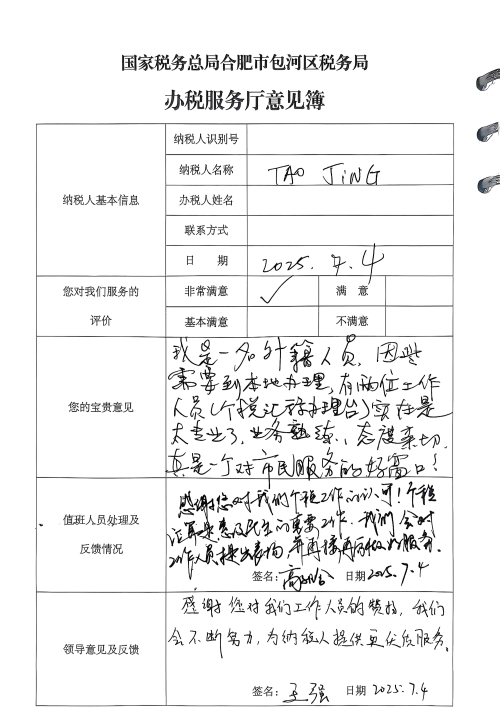 国家税务总局合肥市包河区税务局
办税服务厅意见簿
纳税人基本信息
纳税人识别号
纳税人名称 TAO JING
办税人姓名
联系方式
日 期 2025. 7. 4
您对我们服务的
评价
非常满意 ✓ 满 意
基本满意 不满意
您的宝贵意见
我是一名外籍人员，因此
需要到本地办理，有两位工作
人员(个税汇算办理台)实在是
太专业了，业务熟练，态度亲切
真是一个对市民服务的好窗口！
值班人员处理及
反馈情况
感谢您对我们个税工作的认可！个税
汇算是惠及民生的重要工作，我们会对
工作人员提出表扬，并再接再厉做好服务.
签名： 日期 2025.7.4
领导意见及反馈
感谢您对我们工作人员的赞扬，我们
会不断努力，为纳税人提供更优质服务。
签名：王强 日期 2025.7.4